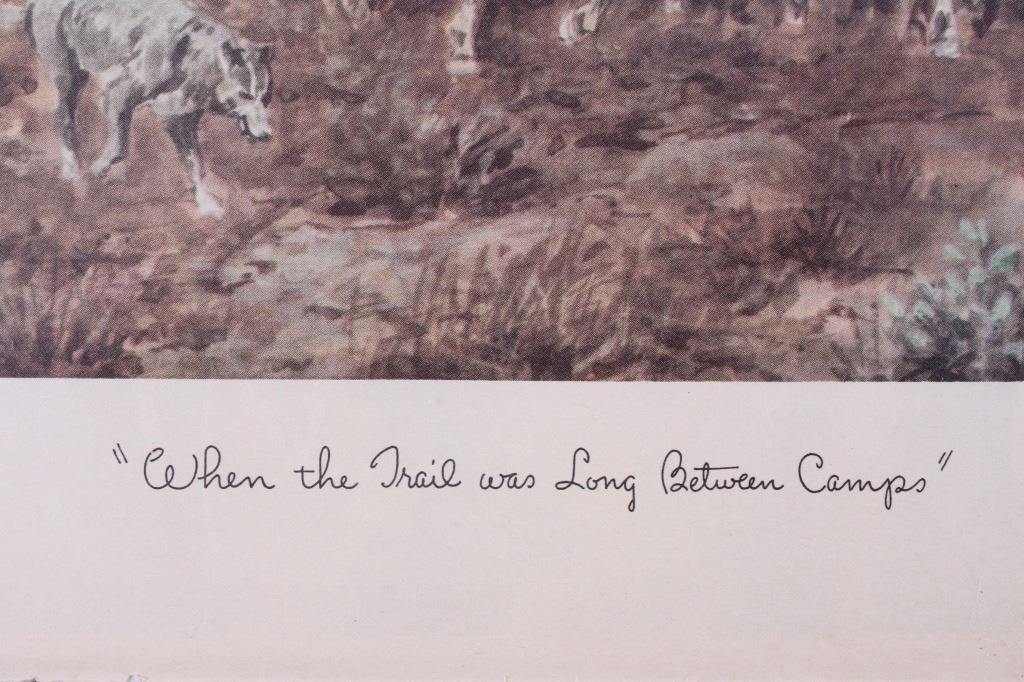 "When the Trail was Long Between Camps"